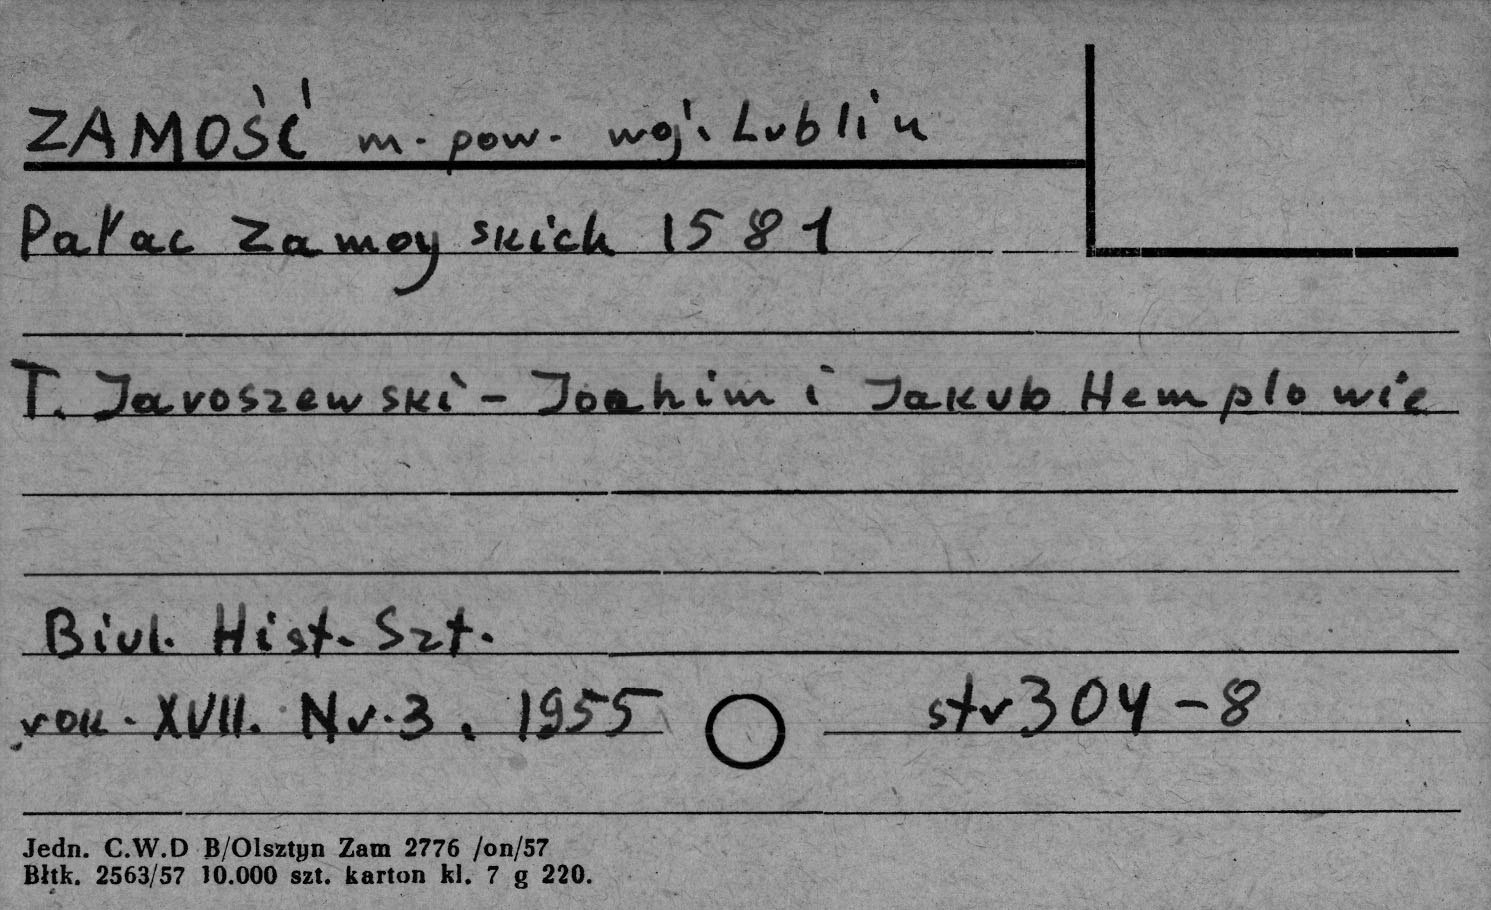 ZAMOŚĆ m. pow. woj. Lublin
Pałac Zamoyskich 1581
T. Jaroszewski – Joahim i Jakub Hemplowie
Biul. Hist. Szt.
rok. XVII. Nr. 3. 1955 str 304 – 8
Jedn. C.W.D B/Olsztyn Zam 2776 /on/57
Błtk. 2563/57 10.000 szt. karton kl. 7 g 220.